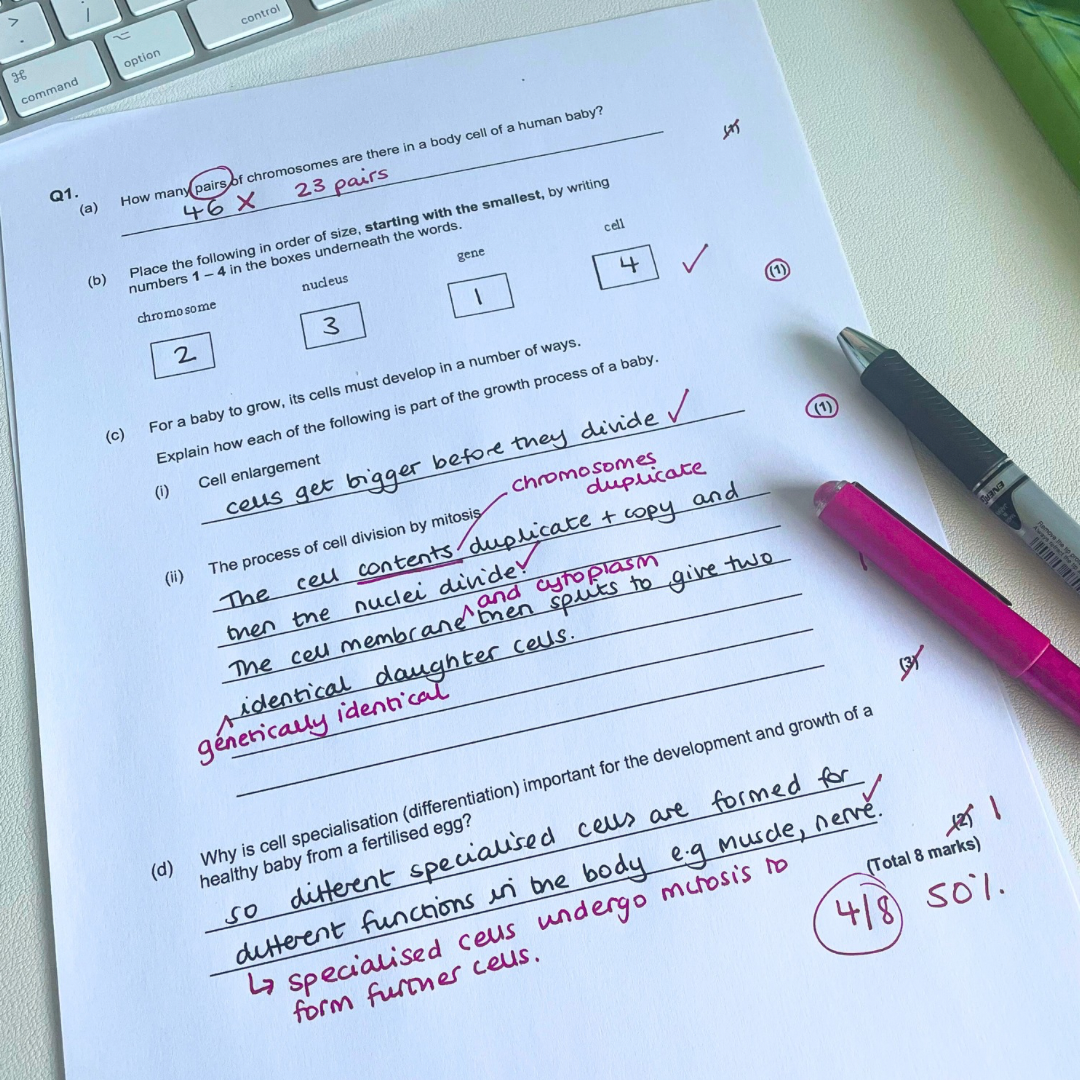 >
.
/
⌘
command
⌥
option
control
Q1.
(a) How many pairs of chromosomes are there in a body cell of a human baby?
46 X 23 pairs
(1)
(b) Place the following in order of size, starting with the smallest, by writing
numbers 1 – 4 in the boxes underneath the words.
chromosome nucleus gene cell
2 3 1 4 ✓
(1)
(c) For a baby to grow, its cells must develop in a number of ways.
Explain how each of the following is part of the growth process of a baby.
(i) Cell enlargement
cells get bigger before they divide ✓
(1)
(ii) The process of cell division by mitosis
chromosomes
duplicate
The cell contents duplicate + copy and
then the nuclei divide. ✓
and cytoplasm
The cell membrane then splits to give two
identical daughter cells.
genetically identical
1
(3)
(d) Why is cell specialisation (differentiation) important for the development and growth of a
healthy baby from a fertilised egg?
so different specialised cells are formed for
different functions in the body e.g muscle, nerve. ✓
↳ specialised cells undergo mitosis to
form further cells.
(2) 1
(Total 8 marks)
4/8 50%.